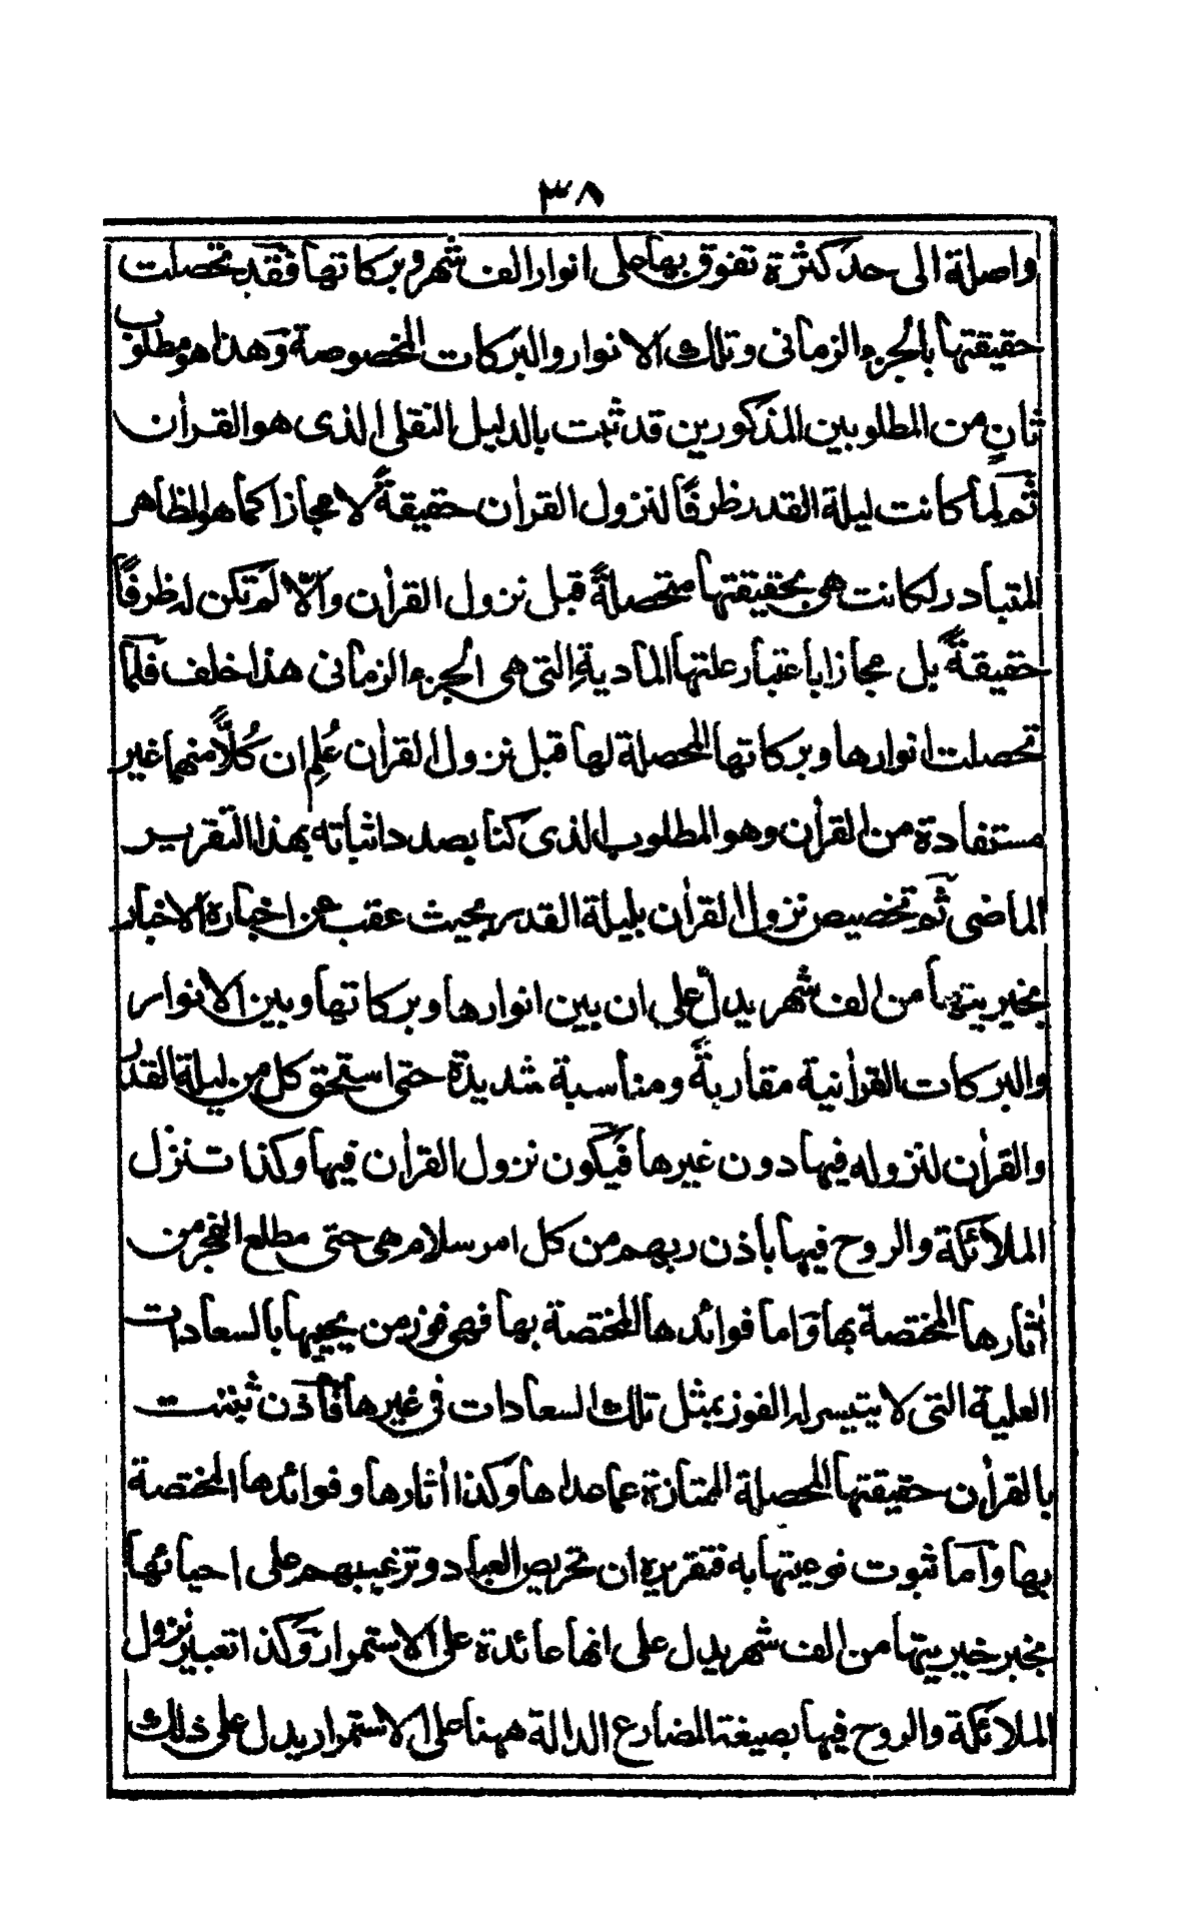 ٣٨
واصلة الى حد كثرة تفوق بها على انوار الف شهر و بركاتها فقد تحصلت
حقيقتها بالجزء الزمانى وتلك الانوار والبركات المخصوصة وهذا هو مطلوب
ثانٍ من المطلوبين المذكورين قد ثبت بالدليل النقلى الذى هو القران
ثم لما كانت ليلة القدر ظرفًا لنزول القران حقيقةً لا مجازا كما هو الظاهر
المتبادر لكانت هى بحقيقتها متحصلةً قبل نزول القرٰان والّا لم تكن له ظرفًا
حقيقةً بل مجازا باعتبار علتها المادية التى هى الجزء الزمانى هذا خلف فلما
تحصلت انوارها وبركاتها المحصلة لها قبل نزول القرٰان عُلِم ان كُلًّا منهما غير
مستفادة من القرٰان وهو المطلوب الذى كنا بصدد اثباته بهذا التقرير
الماضى ثم تخصيص نزول القرٰان بليلة القدر بحيث عقب عن اخباره الاخبار
بخيريتها من الف شهر يدلّ على ان بين انوارها وبركاتها وبين الانوار
والبركات القرٰانية مقاربةً ومناسبة شديدة حتى استحق كل من ليلة القدر
والقرٰان لنزوله فيها دون غيرها فيكون نزول القرٰان فيها وكذا تنزل
الملائكة والروح فيها باذن ربهم من كل امر سلام هى حتى مطلع الفجر من
اٰثارها المختصة بها واما فوائدها المختصة بها فهى فوز من يحييها بالسعادات
العلية التى لا يتيسر له الفوز بمثل تلك السعادات فى غيرها فاذن ثبتت
بالقرٰان حقيقتها المحصلة الممتازة عما عداها وكذا اٰثارها وفوائدها المختصة
بها واما ثبوت نوعيتها به فتقريره ان تحريص العباد وترغيبهم على احيائها
بخبر خيريتها من الف شهر يدل على انها عائدة على الاستمرار وكذا تعبير نزول
الملائكة والروح فيها بصيغة المضارع الدالة ههنا على الاستمرار يدل على ذلك